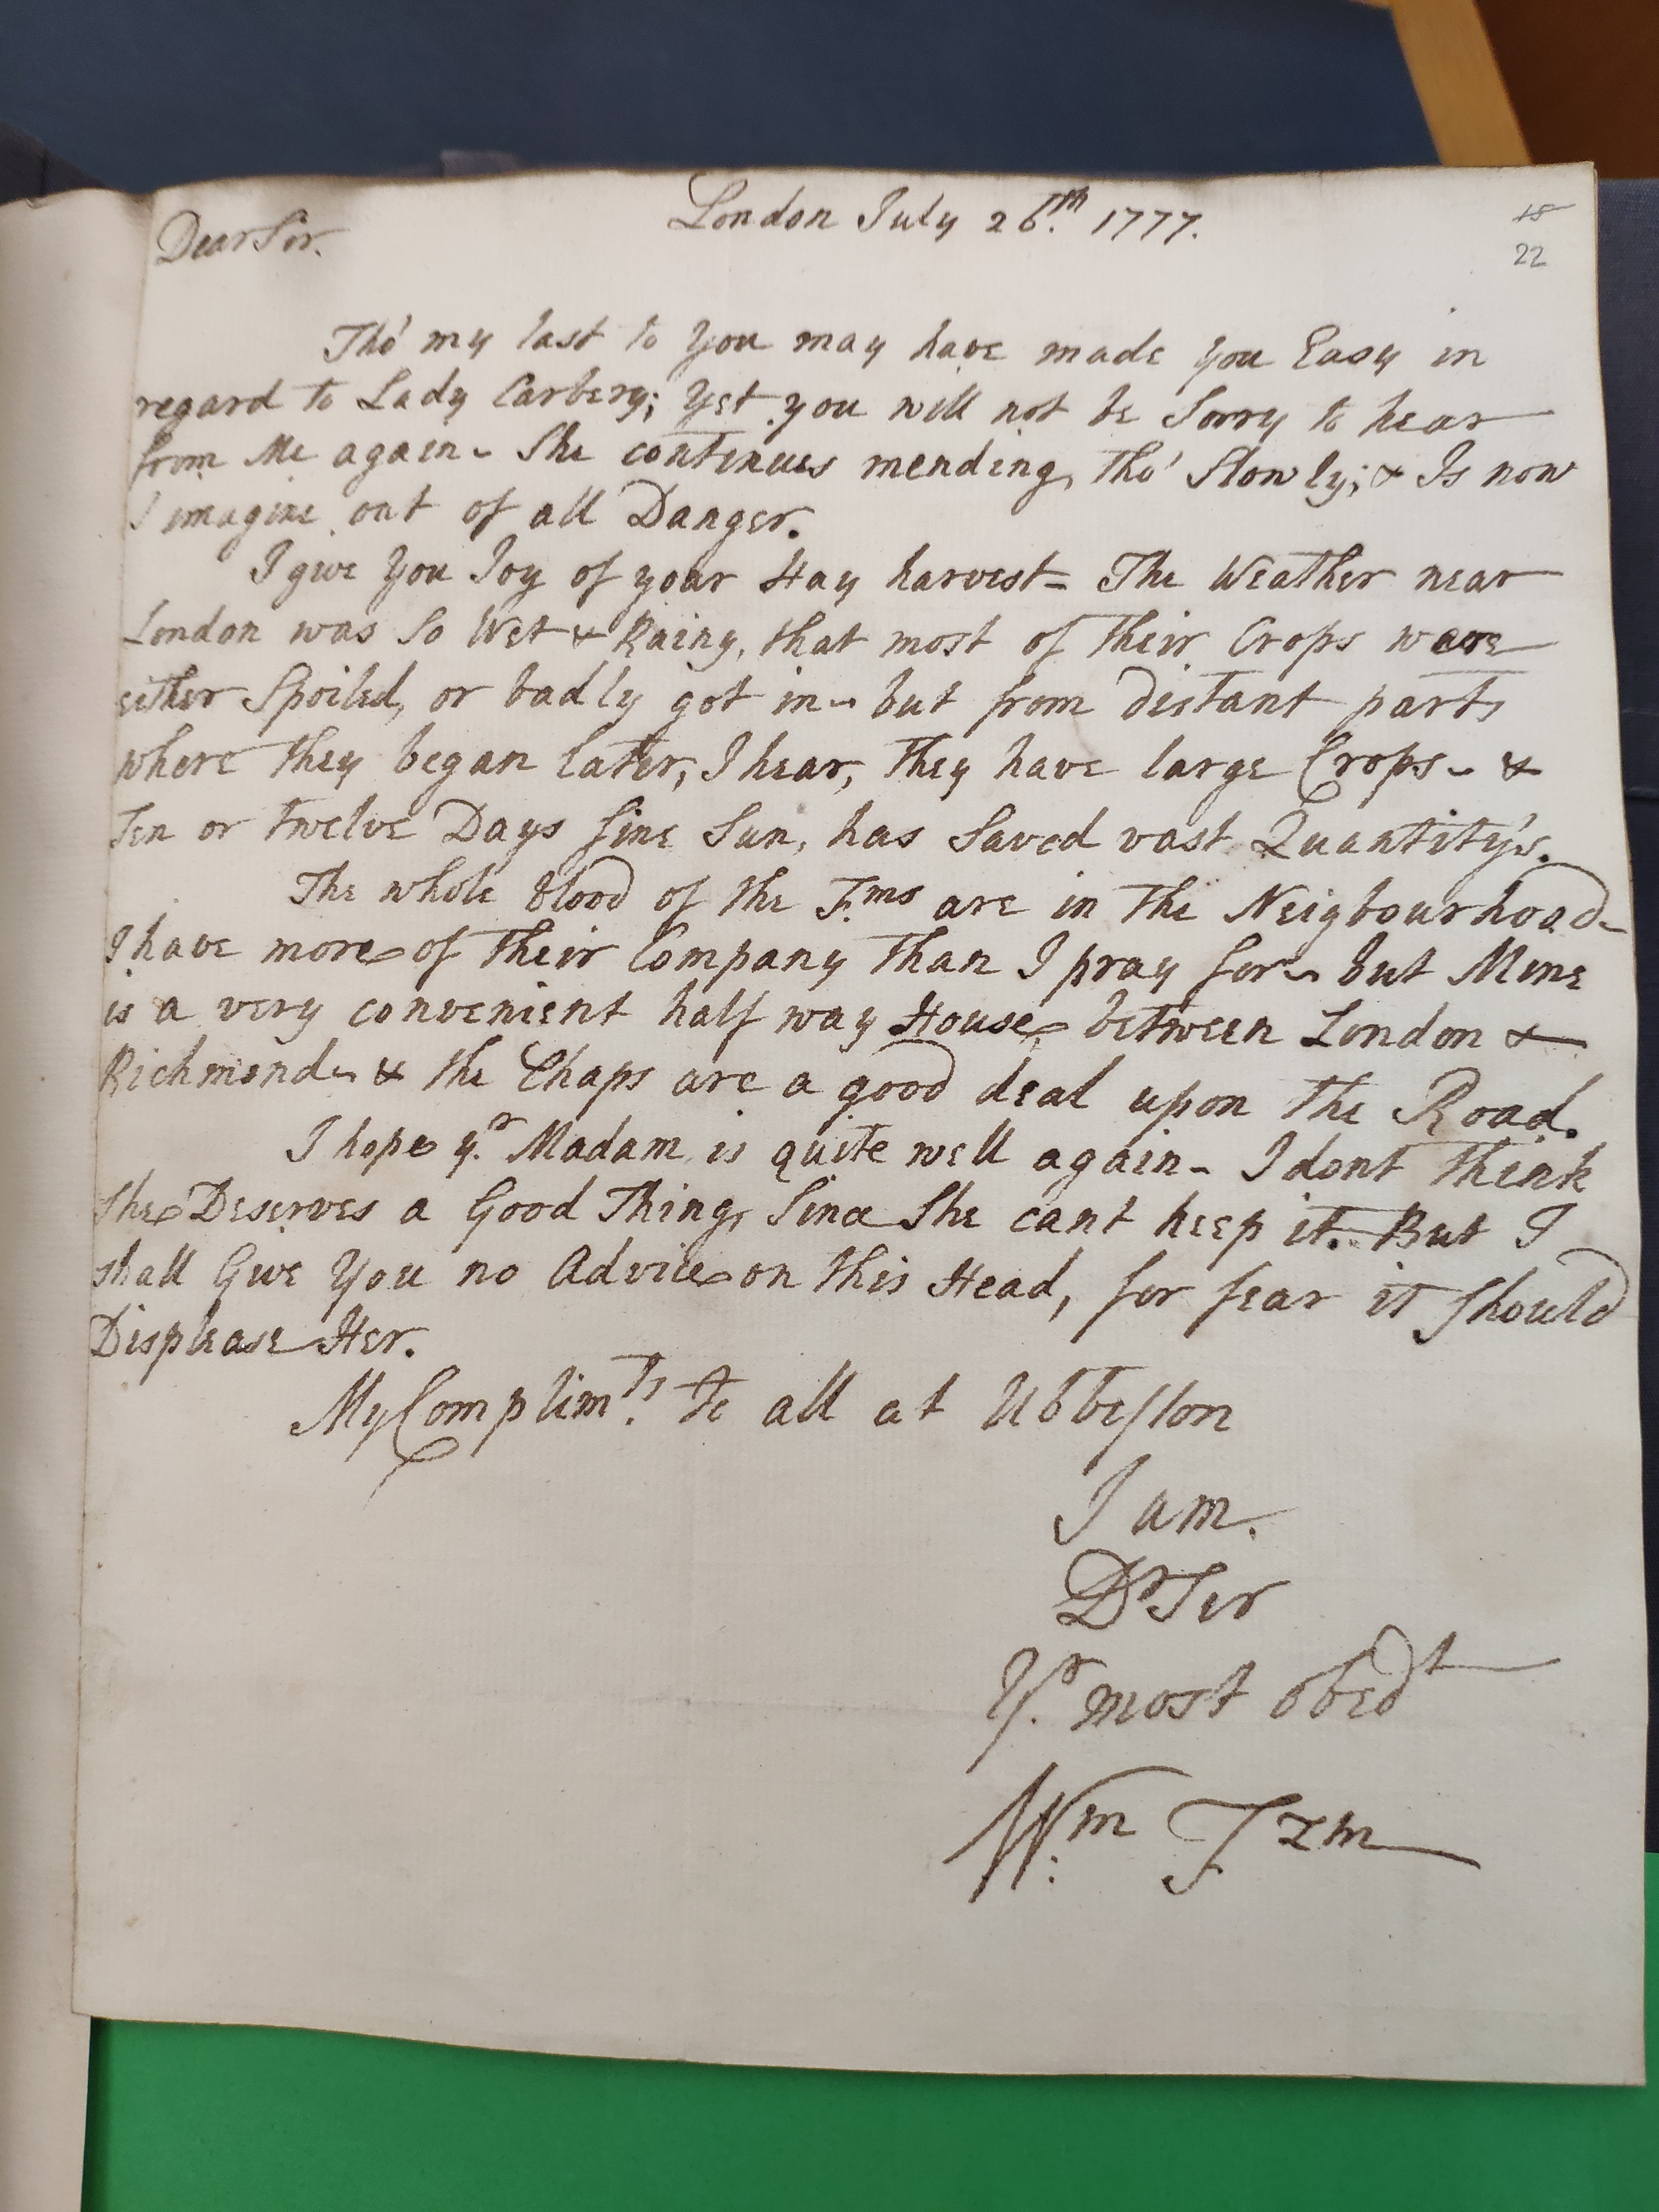 London July 26.th 1777.
18
22
Dear Sir.
Tho' my last to you may have made you Easy in
regard to Lady Carbery; Yet you will not be Sorry to hear
from Me again - She continues mending, tho' Slowly; & Is now
I imagine out of all Danger.
I give you Joy of your Hay harvest - The Weather near
London was So Wet & Rainy, that most of their Crops were
either Spoiled, or badly got in - but from distant parts
where they began later, I hear, they have large Crops - &
Ten or twelve Days fine Sun, has Saved vast Quantity's.
The whole blood of the F.ms are in the Neigbourhood -
I have more of their Company than I pray for - but Mine
is a very convenient half way House between London &
Richmond - & the Chaps are a good deal upon the Road.
I hope y.r Madam is quite well again - I dont think
She Deserves a Good Thing, Since She cant keep it. But I
shall Give You no Advice on this Head, for fear it should
Displease Her.
My Complim.ts to all at Ubbeston
I am.
Dr Sir
Y.r most obedt
W.m Fzm